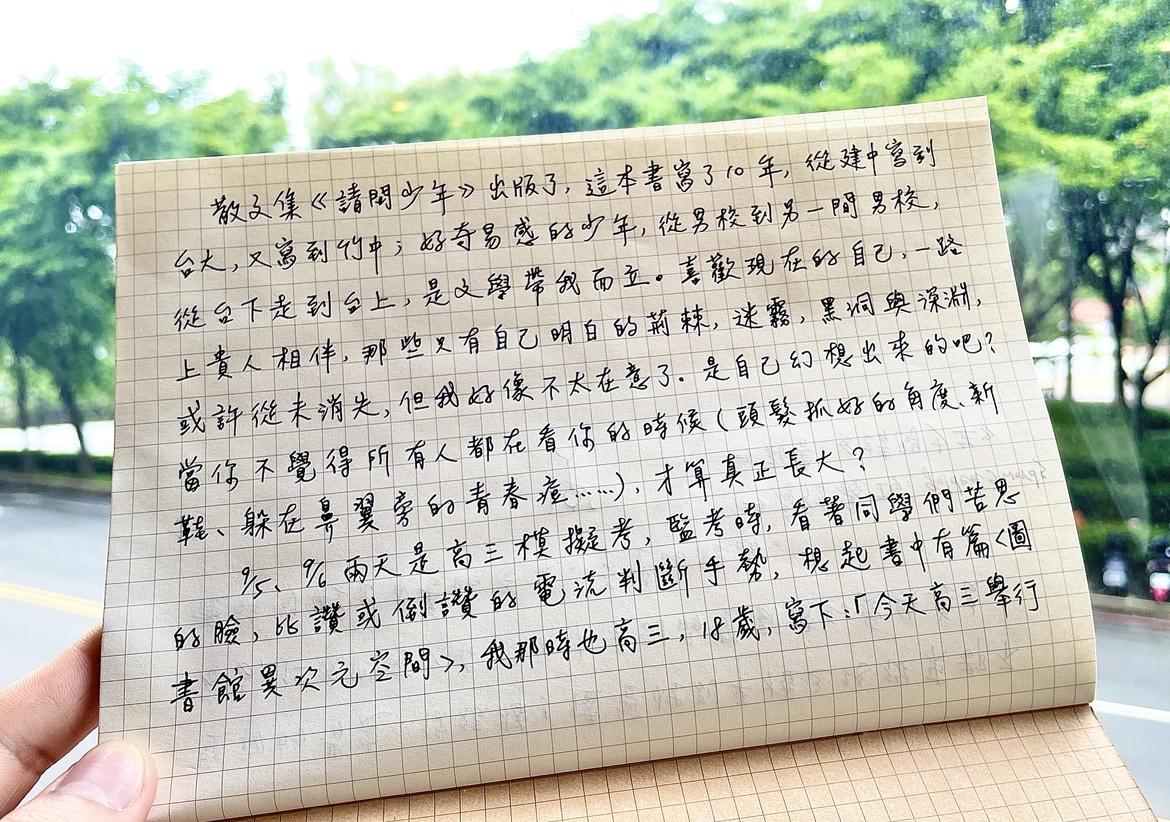 散文集《請問少年》出版了，這本書寫了10年，從建中寫到
台大，又寫到竹中；好奇易感的少年，從男校到另一間男校，
從台下走到台上，是文學帶我而立。喜歡現在的自己，一路
上貴人相伴，那些只有自己明白的荊棘，迷霧，黑洞與深淵，
或許從未消失，但我好像不太在意了。是自己幻想出來的吧？
當你不覺得所有人都在看你的時候（頭髮抓好的角度、新
鞋、躲在鼻翼旁的青春痘……），才算真正長大？
9/5、9/6兩天是高三模擬考，監考時，看著同學們苦思
的臉，比讚或倒讚的電流判斷手勢，想起書中有篇〈圖
書館異次元空間〉，我那時也高三，18歲，寫下：「今天高三舉行